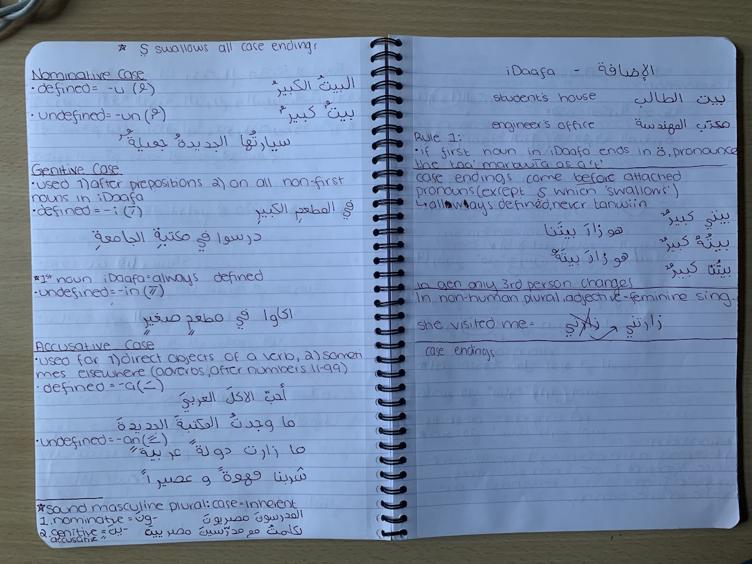 * ي swallows all case endings
Nominative Case
• defined = -u (ُ)
البيتُ الكبيرُ
• undefined = -un (ٌ)
بيتٌ كبيرٌ
سيارتُها الجديدةُ جميلةٌ
Genitive Case
• used 1) after prepositions 2) on all non-first
nouns in iDaafa
• defined = -i (ِ)
في المطعمِ الكبيرِ
درسوا في مكتبةِ الجامعةِ
*1st noun iDaafa = always defined
• undefined = -in (ٍ)
اكلوا في مطعمٍ صغيرٍ
Accusative Case
• used for 1) direct objects of a verb, 2) someti
mes elsewhere (adverbs, after numbers 11-99)
• defined = -a (َ)
أحبّ الاكلَ العربيَ
ما وجدتُ المكتبةَ الجديدةَ
• undefined = -an (ً)
ما زارت دولةً عربيةً
شربنا قهوةً و عصيراً
*Sound masculine plural: case = inherent
1. nominative = ون-
المدرسون مصريون
2. genitive = ين-
accusative
تكلمتُ مع مدرّسين مصريين
iDaafa - الإضافة
student's house بيت الطالب
engineer's office مكتب المهندسة
Rule 1:
• if first noun in iDaafa ends in ة, pronounce
the taa' marbuuta as a 't'
case endings come before attached
pronouns (except ي which 'swallows')
↳ allways defined, never tanwiin
بيتي كبيرٌ
هو زارَ بيتَنا
بيتُهُ كبيرٌ
هو زارَ بيتَهُ
بيتُنا كبيرٌ
in gen only 3rd person changes
In non-human plural, adjective = feminine sing.
she visited me = زارتني
case endings